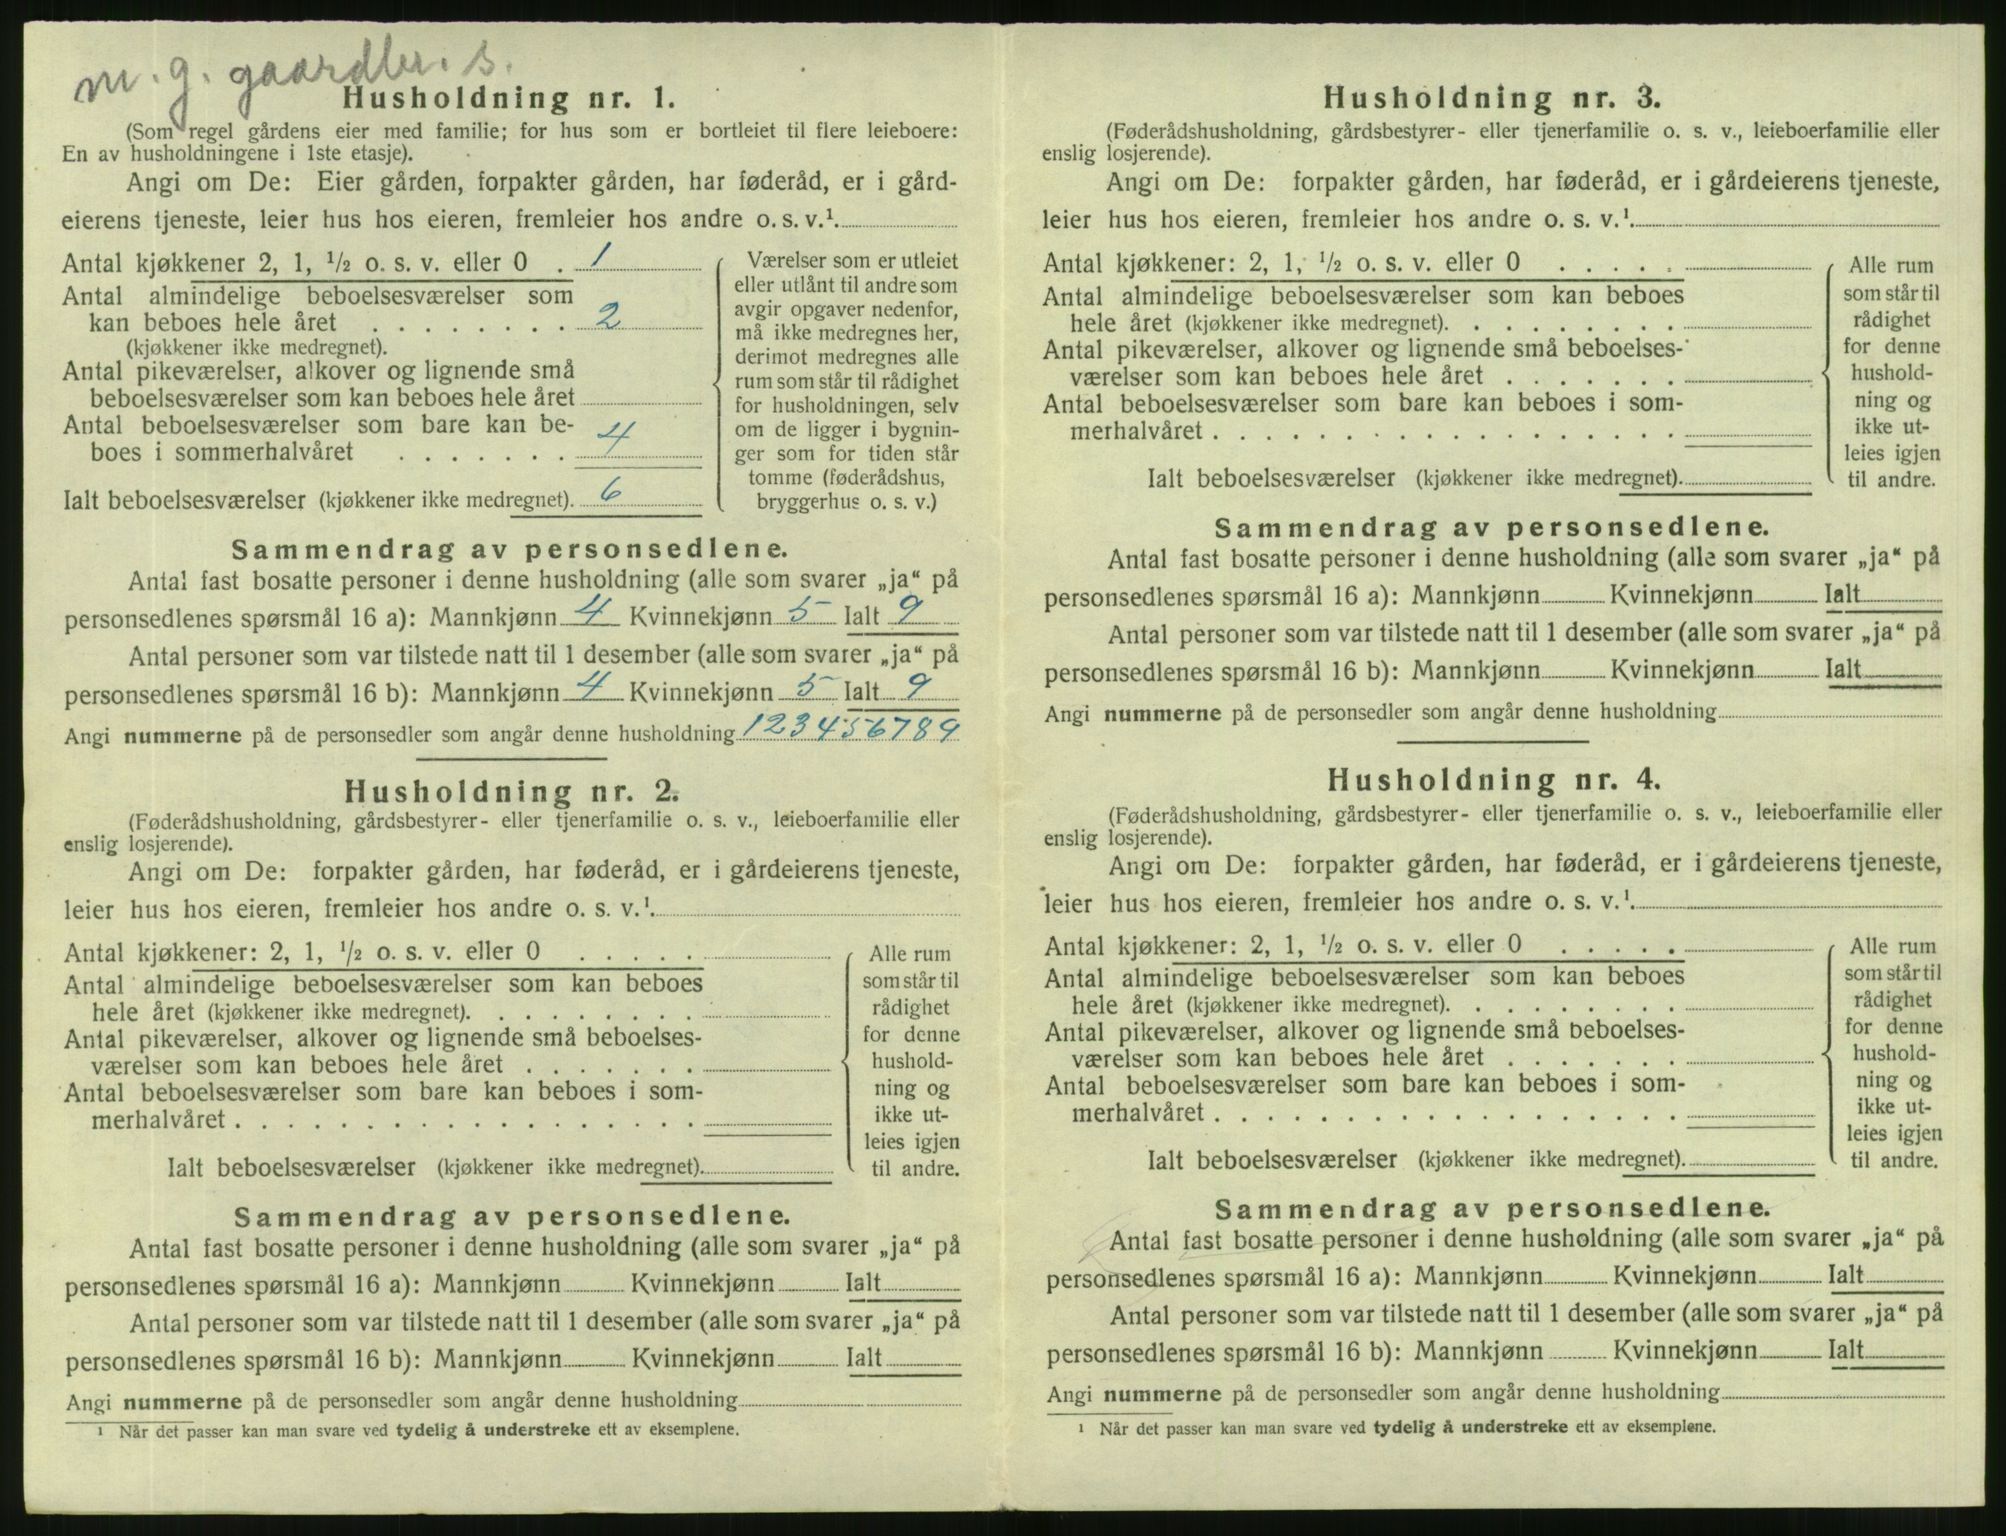 m. g. gaardbr. s.
Husholdning nr. 1.
(Som regel gårdens eier med familie; for hus som er bortleiet til flere leieboere:
En av husholdningene i 1ste etasje).
Angi om De: Eier gården, forpakter gården, har føderåd, er i gård-
eierens tjeneste, leier hus hos eieren, fremleier hos andre o. s. v.¹.
Antal kjøkkener 2, 1, ½ o. s. v. eller 0 . 1
Antal almindelige beboelsesværelser som
kan beboes hele året . . . . . . . . 2
(kjøkkener ikke medregnet).
Antal pikeværelser, alkover og lignende små
beboelsesværelser som kan beboes hele året
Antal beboelsesværelser som bare kan be-
boes i sommerhalvåret . . . . . . . 4
Ialt beboelsesværelser (kjøkkener ikke medregnet). 6
Værelser som er utleiet
eller utlånt til andre som
avgir opgaver nedenfor,
må ikke medregnes her,
derimot medregnes alle
rum som står til rådighet
for husholdningen, selv
om de ligger i bygnin-
ger som for tiden står
tomme (føderådshus,
bryggerhus o. s. v.)
Sammendrag av personsedlene.
Antal fast bosatte personer i denne husholdning (alle som svarer „ja“ på
personsedlenes spørsmål 16 a): Mannkjønn 4 Kvinnekjønn 5 Ialt 9
Antal personer som var tilstede natt til 1 desember (alle som svarer „ja“ på
personsedlenes spørsmål 16 b): Mannkjønn 4 Kvinnekjønn 5 Ialt 9
Angi nummerne på de personsedler som angår denne husholdning 1 2 3 4 5 6 7 8 9
Husholdning nr. 2.
(Føderådshusholdning, gårdsbestyrer- eller tjenerfamilie o. s. v., leieboerfamilie eller
enslig losjerende).
Angi om De: forpakter gården, har føderåd, er i gårdeierens tjeneste,
leier hus hos eieren, fremleier hos andre o. s. v.¹.
Antal kjøkkener: 2, 1, ½ o. s. v. eller 0 . . . . .
Antal almindelige beboelsesværelser som kan beboes
hele året (kjøkkener ikke medregnet). . . . . . . . .
Antal pikeværelser, alkover og lignende små beboelses-
værelser som kan beboes hele året . . . . . . .
Antal beboelsesværelser som bare kan beboes i som-
merhalvåret . . . . . . . . . . . . . . . . . .
Ialt beboelsesværelser (kjøkkener ikke medregnet).
Alle rum
som står til
rådighet
for denne
hushold-
ning og
ikke ut-
leies igjen
til andre.
Sammendrag av personsedlene.
Antal fast bosatte personer i denne husholdning (alle som svarer „ja“ på
personsedlenes spørsmål 16 a): Mannkjønn Kvinnekjønn Ialt
Antal personer som var tilstede natt til 1 desember (alle som svarer „ja“ på
personsedlenes spørsmål 16 b): Mannkjønn Kvinnekjønn Ialt
Angi nummerne på de personsedler som angår denne husholdning
¹ Når det passer kan man svare ved tydelig å understreke ett av eksemplene.
Husholdning nr. 3.
(Føderådshusholdning, gårdsbestyrer- eller tjenerfamilie o. s. v., leieboerfamilie eller
enslig losjerende).
Angi om De: forpakter gården, har føderåd, er i gårdeierens tjeneste,
leier hus hos eieren, fremleier hos andre o. s. v.¹.
Antal kjøkkener: 2, 1, ½ o. s. v. eller 0 . . . . .
Antal almindelige beboelsesværelser som kan beboes
hele året (kjøkkener ikke medregnet). . . . . . . . .
Antal pikeværelser, alkover og lignende små beboelses-
værelser som kan beboes hele året . . . . . . .
Antal beboelsesværelser som bare kan beboes i som-
merhalvåret . . . . . . . . . . . . . . . . . .
Ialt beboelsesværelser (kjøkkener ikke medregnet).
Alle rum
som står til
rådighet
for denne
hushold-
ning og
ikke ut-
leies igjen
til andre.
Sammendrag av personsedlene.
Antal fast bosatte personer i denne husholdning (alle som svarer „ja“ på
personsedlenes spørsmål 16 a): Mannkjønn Kvinnekjønn Ialt
Antal personer som var tilstede natt til 1 desember (alle som svarer „ja“ på
personsedlenes spørsmål 16 b): Mannkjønn Kvinnekjønn Ialt
Angi nummerne på de personsedler som angår denne husholdning
Husholdning nr. 4.
(Føderådshusholdning, gårdsbestyrer- eller tjenerfamilie o. s. v., leieboerfamilie eller
enslig losjerende).
Angi om De: forpakter gården, har føderåd, er i gårdeierens tjeneste,
leier hus hos eieren, fremleier hos andre o. s. v.¹.
Antal kjøkkener: 2, 1, ½ o. s. v. eller 0 . . . . .
Antal almindelige beboelsesværelser som kan beboes
hele året (kjøkkener ikke medregnet). . . . . . . . .
Antal pikeværelser, alkover og lignende små beboelses-
værelser som kan beboes hele året . . . . . . .
Antal beboelsesværelser som bare kan beboes i som-
merhalvåret . . . . . . . . . . . . . . . . . .
Ialt beboelsesværelser (kjøkkener ikke medregnet).
Alle rum
som står til
rådighet
for denne
hushold-
ning og
ikke ut-
leies igjen
til andre.
Sammendrag av personsedlene.
Antal fast bosatte personer i denne husholdning (alle som svarer „ja“ på
personsedlenes spørsmål 16 a): Mannkjønn Kvinnekjønn Ialt
Antal personer som var tilstede natt til 1 desember (alle som svarer „ja“ på
personsedlenes spørsmål 16 b): Mannkjønn Kvinnekjønn Ialt
Angi nummerne på de personsedler som angår denne husholdning
¹ Når det passer kan man svare ved tydelig å understreke ett av eksemplene.